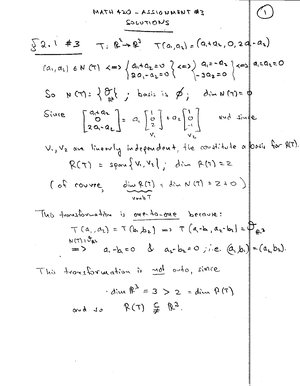 MATH 420 - ASSIGNMENT #3
SOLUTIONS
1
§ 2.1 #3 T: R² → R³ T(a₁,a₂) = (a₁+a₂, 0, 2a₁-a₂)
(a₁,a₂) ∈ N(T) <=> { a₁+a₂=0 2a₁-a₂=0 } <=> { a₁=-a₂ -3a₂=0 } <=> a₁=a₂=0
So N(T) = { }; basis is ∅; dim N(T) = 0
Since [ a₁+a₂ 0 2a₁-a₂ ] = a₁ [ 1 0 2 ] + a₂ [ 1 0 -1 ] and since
V₁ V₂
V₁, V₂ are linearly independent, the constitute a basis for R(T).
R(T) = span{V₁, V₂}; dim R(T) = 2
(of course, dim R(T) = dim N(T) = 2+0).
This transformation is one-to-one because:
T(a₁,a₂) = T(b₁,b₂) => T(a₁-b₁, a₂-b₂) =
=> a₁-b₁=0 & a₂-b₂=0; i.e. (a₁,a₂) = (b₁,b₂).
This transformation is not onto, since
dim R³ = 3 > 2 = dim R(T)
and so R(T) ⊊ R³.